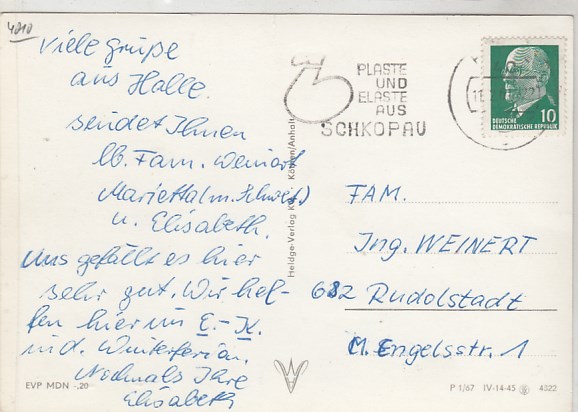 4010
Viele Grüße
aus Halle.
sendet Ihnen
lb. Fam. Weinert
Marietta(m. Schwest)
u. Elisabeth.
Uns gefällt es hier
sehr gut. Wir hel-
fen hier im E.-K.
in d. Winterferien.
Nochmals Ihre
Elisabeth
PLASTE
UND
ELASTE
AUS
SCHKOPAU
10
DEUTSCHE
DEMOKRATISCHE REPUBLIK
Heldge-Verlag KG. Köthen/Anhalt
FAM.
Ing. WEINERT
682 Rudolstadt
M. Engelsstr. 1
EVP MDN -,20
P 1/67 IV-14-45 4322